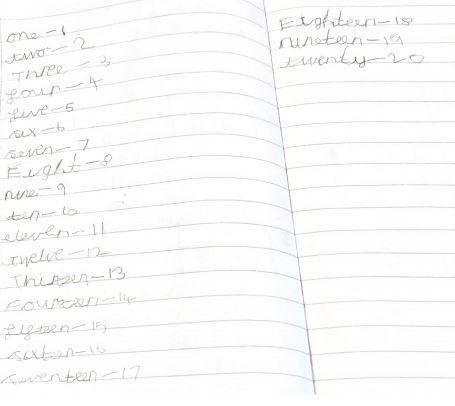 one - 1
two - 2
Three - 3
four - 4
five - 5
six - 6
seven - 7
Eight - 8
nine - 9
ten - 10
eleven - 11
Twelve - 12
Thirteen - 13
Fourteen - 14
fifteen - 15
sixteen - 16
seventeen - 17
Eighteen - 18
nineteen - 19
twenty - 20